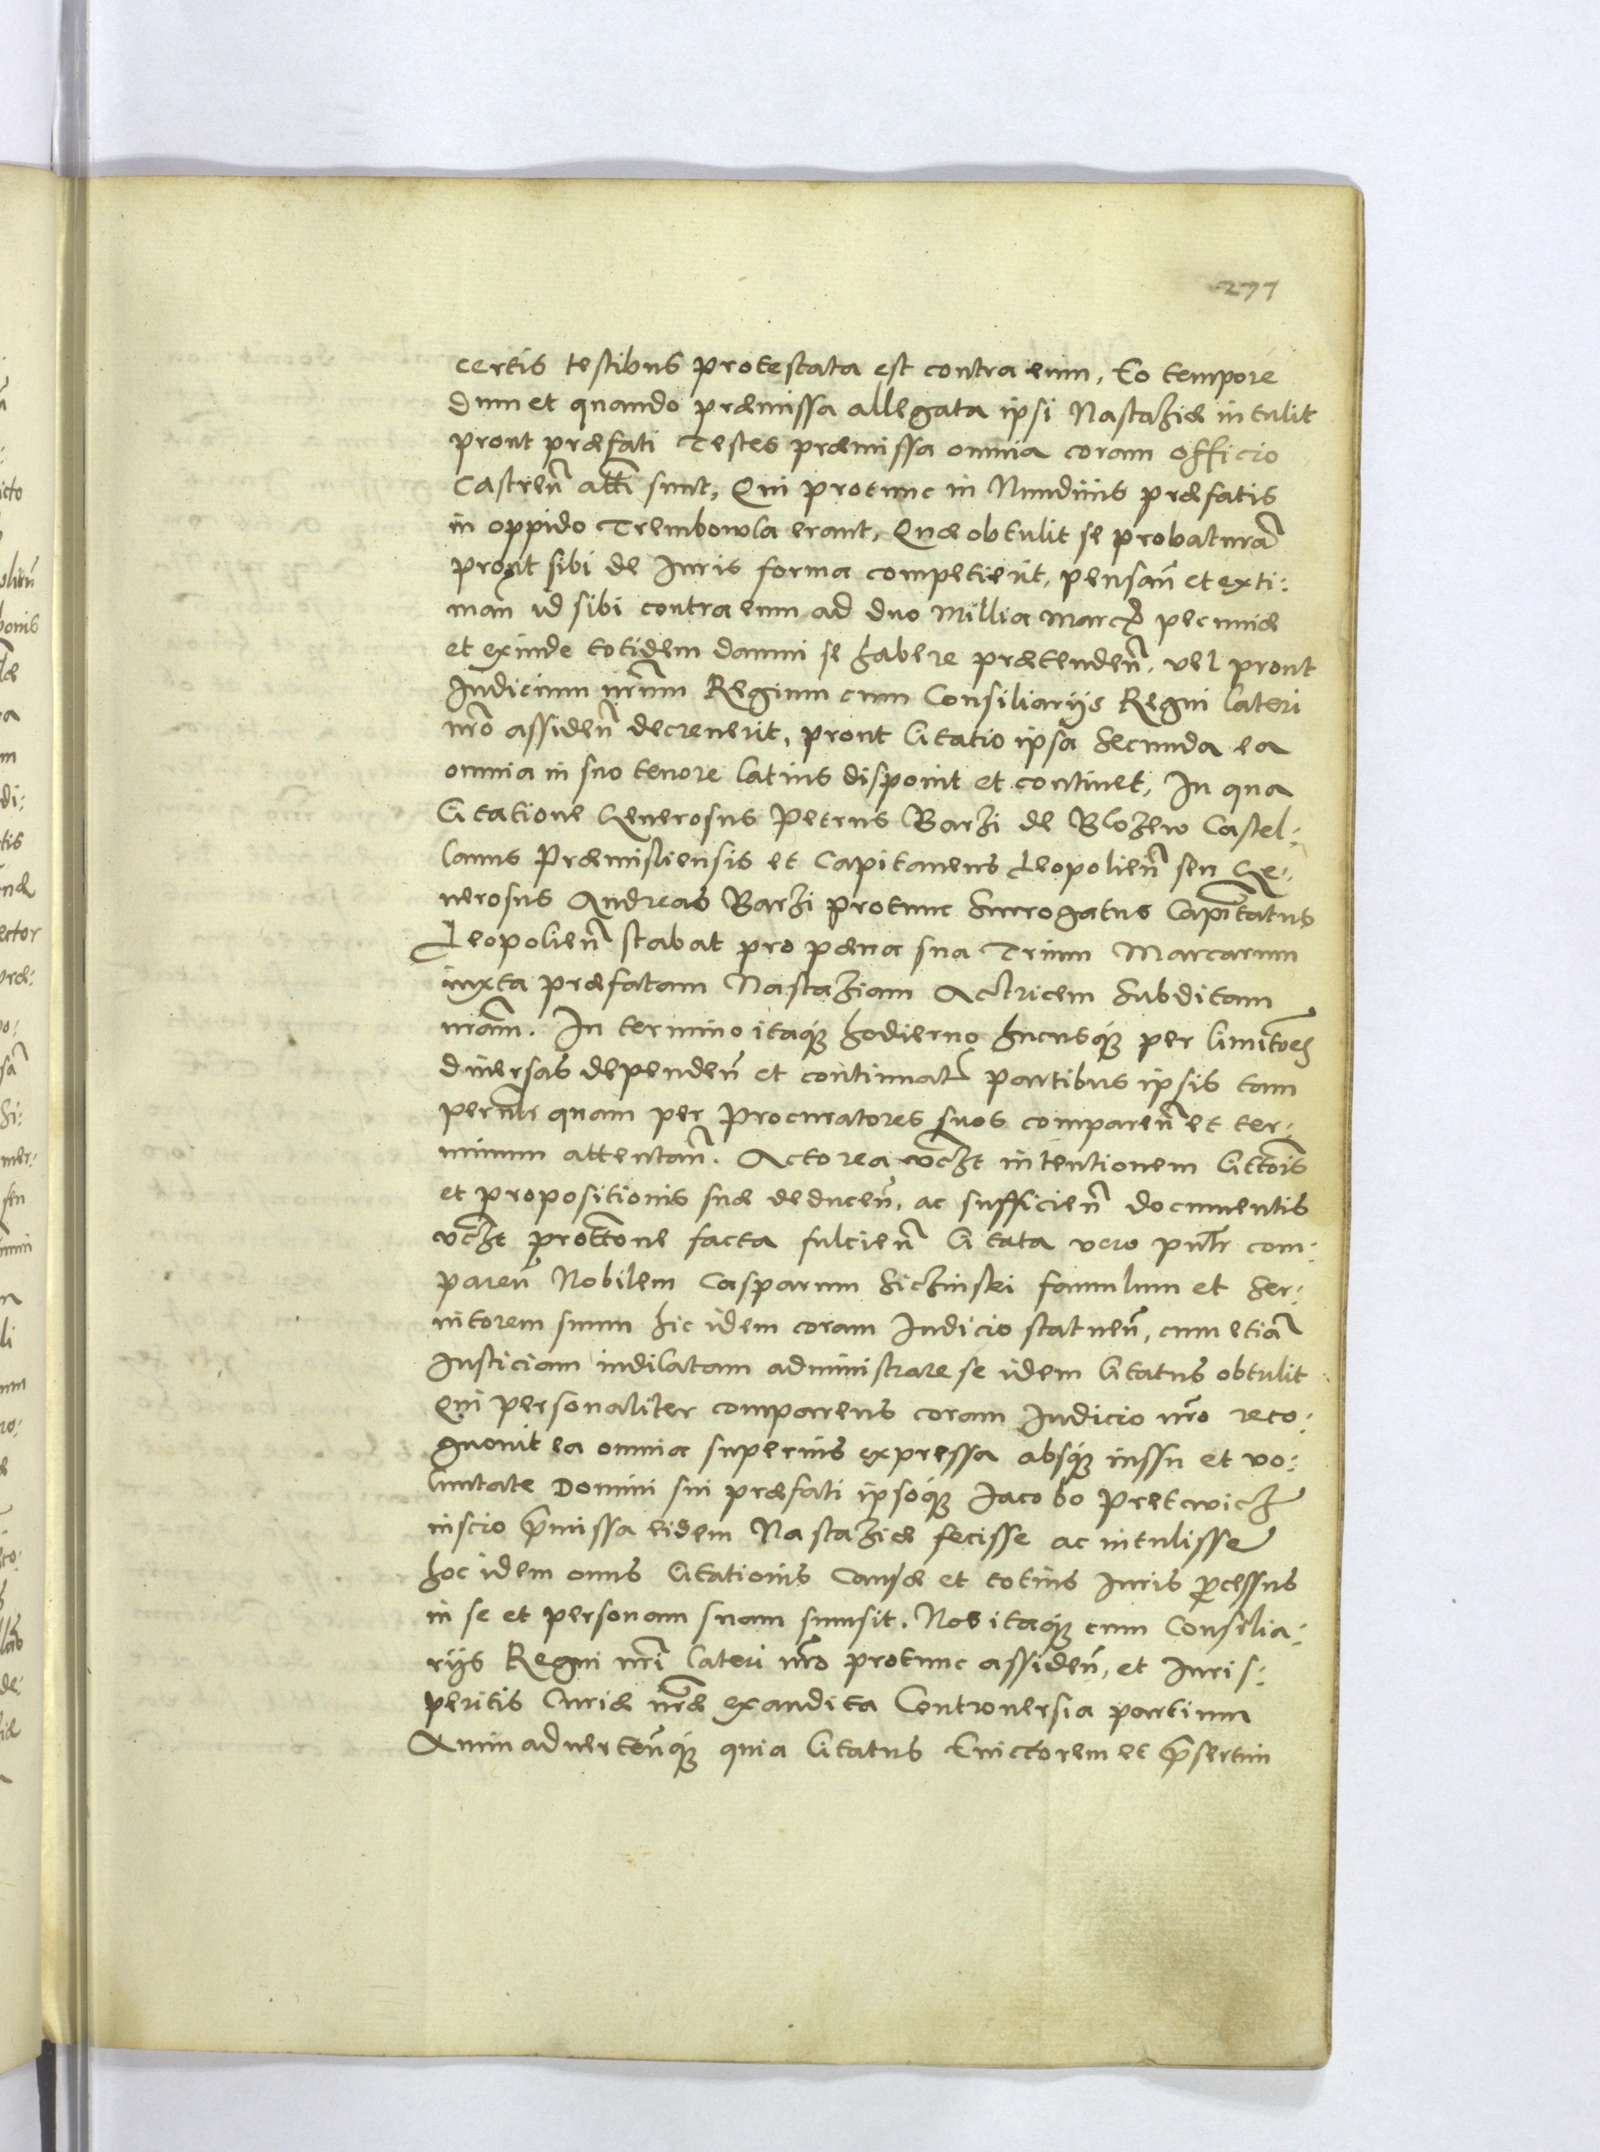 277
certis testibus protestata est contra eum, Eo tempore
dum et quando præmissa allegata ipsi Nastaziæ intulit
prout præfati Testes præmissa omnia coram officio
Castreñ atti sunt, Qui protunc in Nundinis præfatis
in oppido Trembowla erant, Quæ obtulit se probaturã
prout sibi de Iuris forma competierit, pensañ et exti:
mañ id sibi contra eum ad duo Millia Marcar pecuniæ
et exinde totidem damni se habere prætendeñ, vel prout
Iudicium nrũm Regium cum Consiliarijs Regni lateri
nr̃o assideñ decreuerit, prout Citatio ipsa Secunda ea
omnia in suo tenore latius disponit et continet, In qua
Citatione Generosus Petrus Barzi de Blozew Castel:
lanus Præmisliensis et Capitaneus Leopolieñ seu Ge:
nerosus Andreas Barzi protunc Surrogatus Capitatus
Leopolieñ stabat pro pæna sua Trium Marcarum
iuxta præfatam Nastaziam Actricem Subditam
nrãm. In termino itaq̃ hodierno hucusq̃ per Limitoes
diuersas dependeñ et continuat partibus ipsis tam
pernlr quam per Procuratores suos compareñ et ter:
minum attentañ. Actorea vctz intentionem Cittois
et propositionis suæ deduceñ, ac sufficieñ documentis
vctz prottone facta fulcieñ Citata vero pnlr com:
pareñ Nobilem Casparum Siczinski famulum et Ser:
uitorem suum hic idem coram Iudicio statueñ, cum etiã
Iusticiam indilatam administrare se idem Citatus obtulit
Qui personaliter comparens coram Iudicio nr̃o reco:
gnouit ea omnia superius expressa absq̃ iussu et vo:
luntate Domini sui præfati ipsoq̃ Iacobo Pretwicz
inscio p̃missa eidem Nastaziæ fecisse ac intulisse
hoc idem onus Citationis Causæ et totius Iuris p̃cessus
in se et personam suam sumsit. Nos itaq̃ cum Consilia:
rijs Regni nr̃i lateri nr̃o protunc assideñ, et Iuris:
peritis Curiæ nr̃æ exaudita Controuersia partium
Animaduerteñq̃ quia Citatus Euictorem et p̃sertim